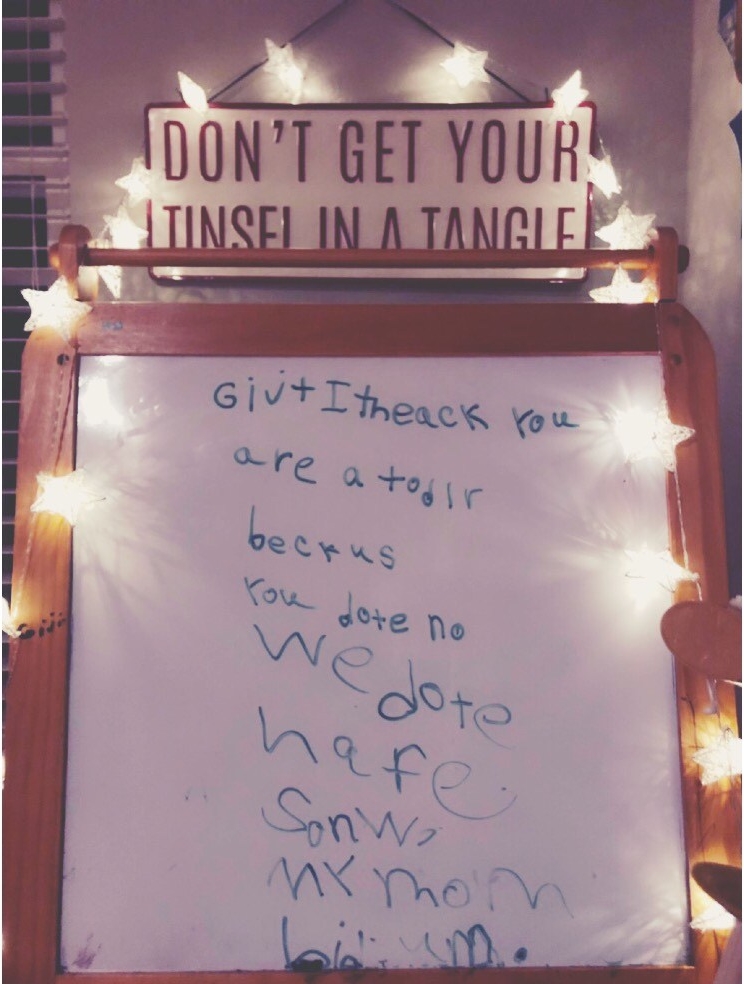 DON'T GET YOUR
TINSEL IN A TANGLE
Givt I theack you
are a todlr
beckus
you dote no
we dote
hafe
sonw,
my mom